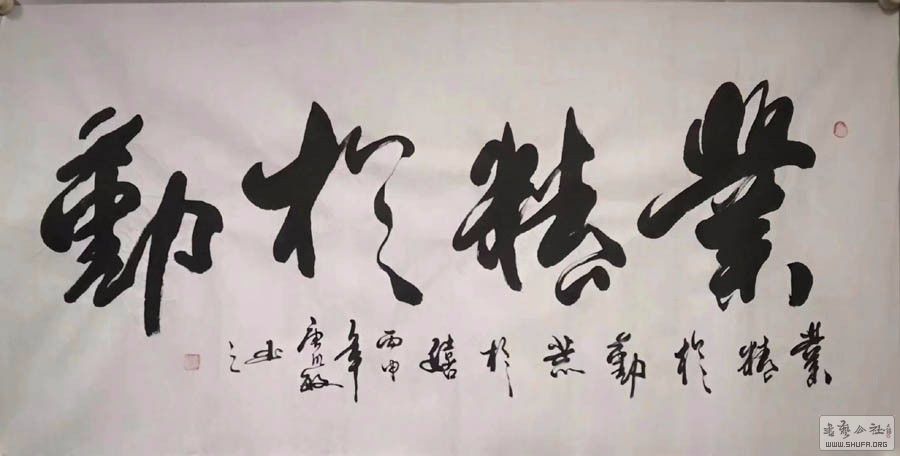 業精於勤
業精於勤荒於嬉丙申年書之
书艺公社
WWW.SHUFA.ORG